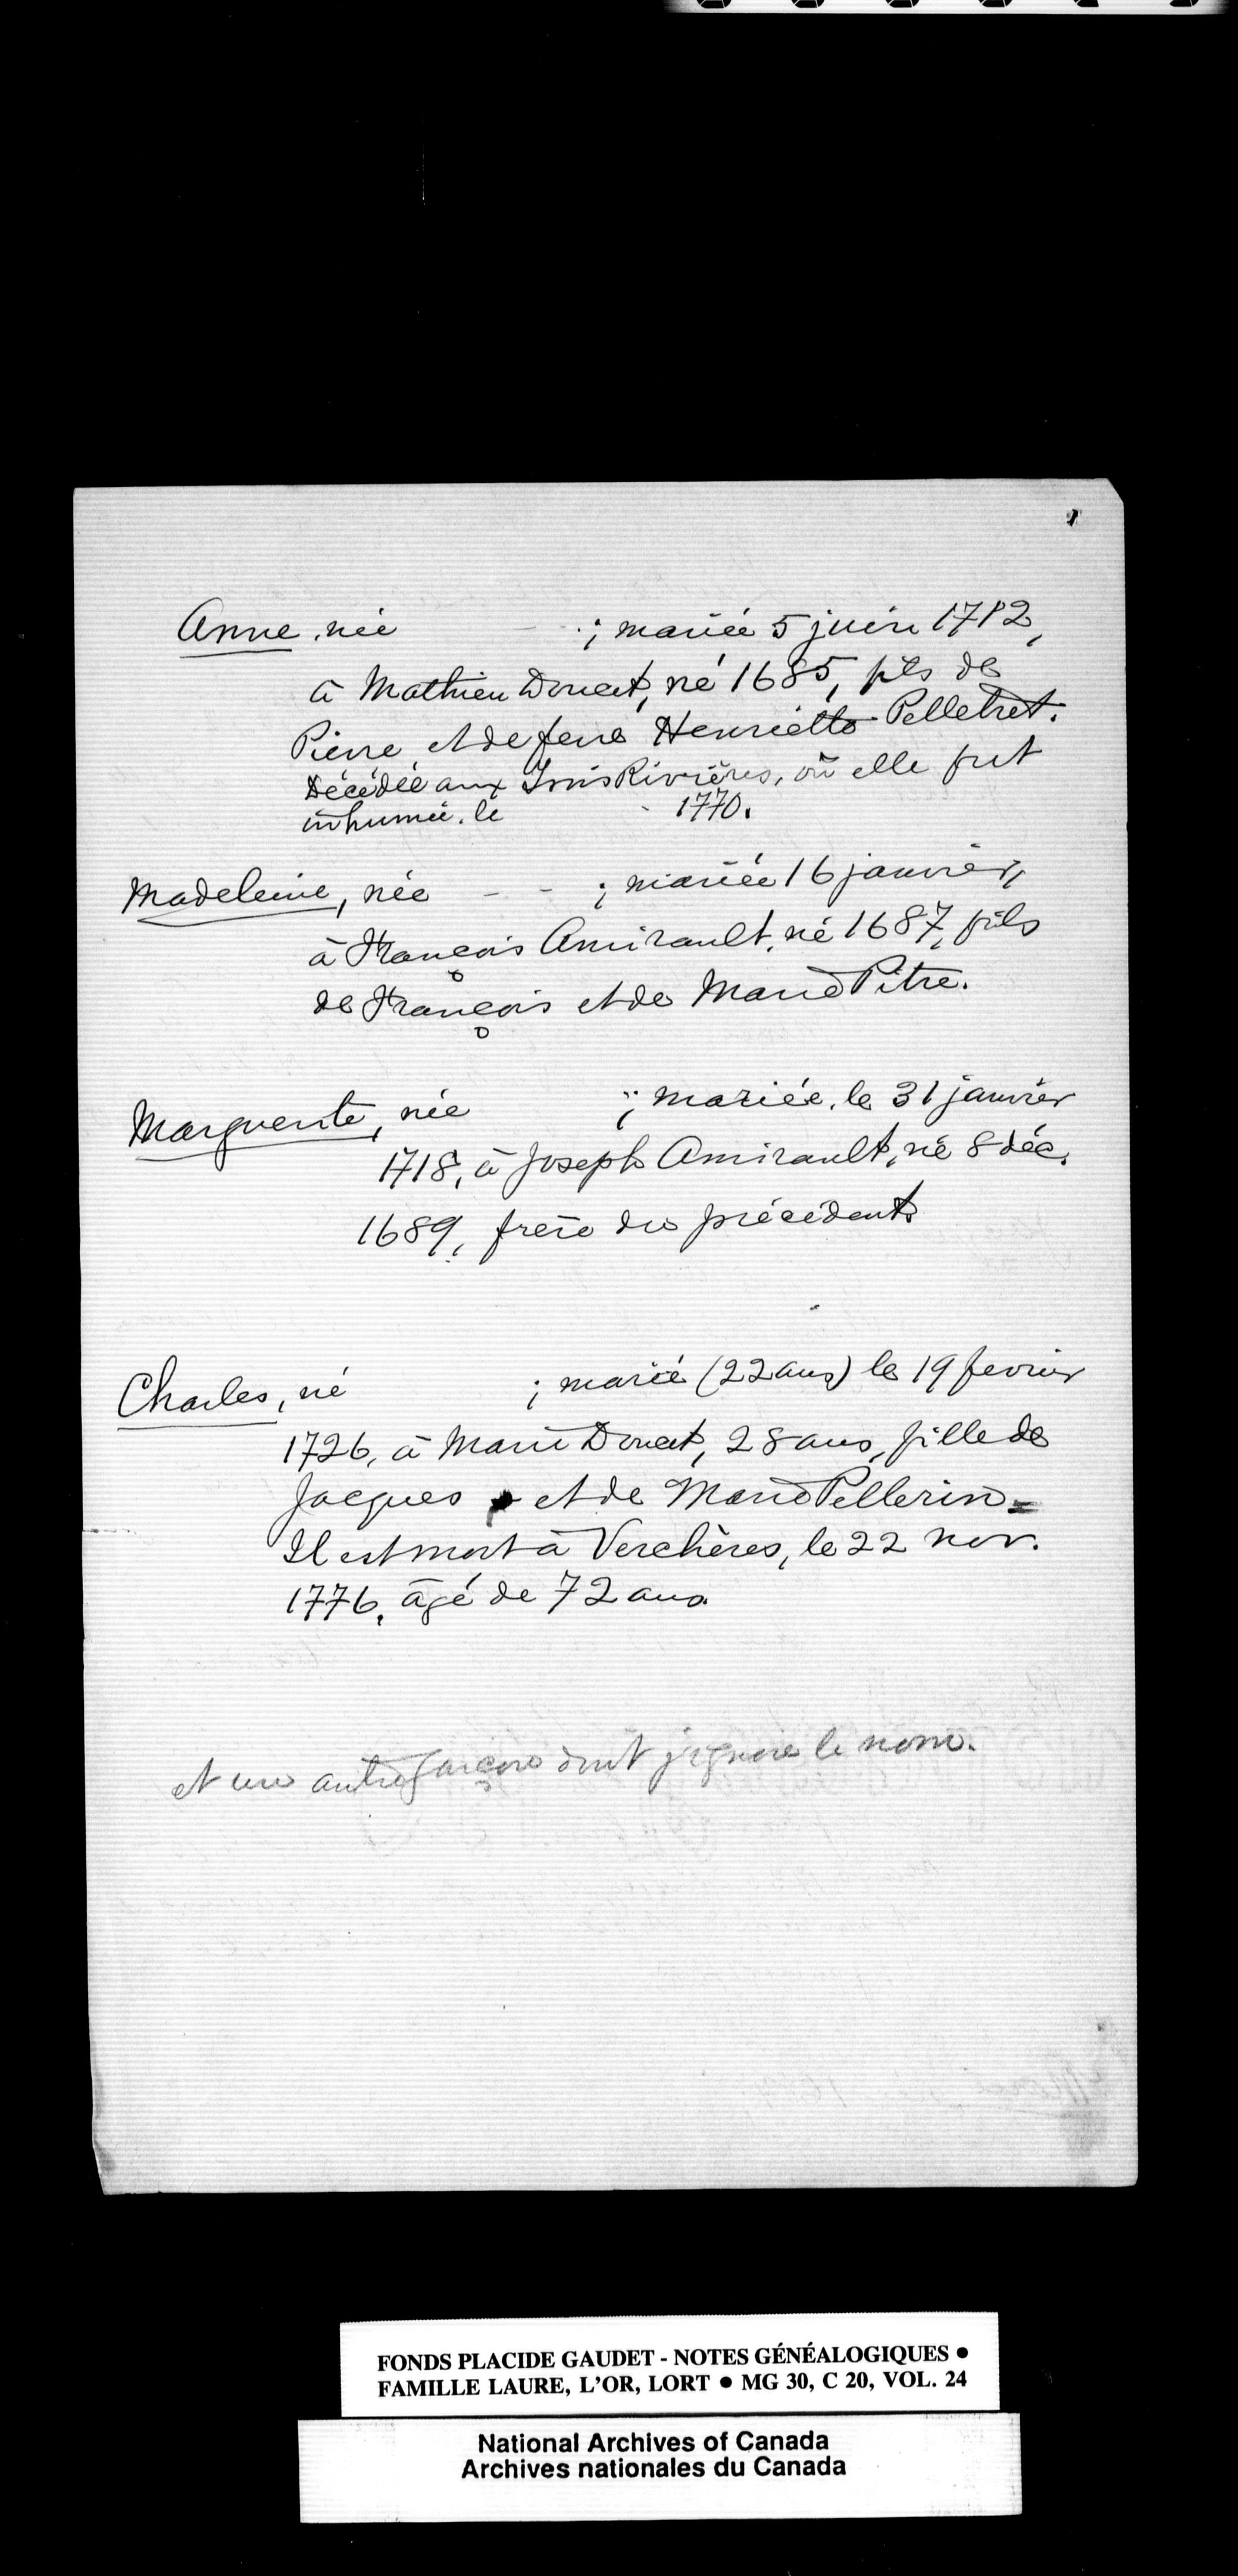 Anne, née - - ; mariée 5 juin 1712,
à Mathieu Doucet, né 1685, fils de
Pierre et de feue Henriette Pelletret.
Décédée aux Trois Rivières, où elle fut
inhumée, le - 1770.
Madeleine, née - - ; mariée 16 janvier,
à François Amirault, né 1687, fils
de François et de Marie Pitre.
Marguerite, née ; mariée, le 31 janvier
1718, à Joseph Amirault, né 8 déc.
1689, frère du précédent
Charles, né ; marié (22 ans) le 19 fevrier
1726, à Marie Doucet, 28 ans, fille de
Jacques et de Marie Pellerin =
Il est mort à Verchères, le 22 nov.
1776, âgé de 72 ans.
et un autre garçon dont j'ignore le nom.
FONDS PLACIDE GAUDET - NOTES GÉNÉALOGIQUES ●
FAMILLE LAURE, L'OR, LORT ● MG 30, C 20, VOL. 24
National Archives of Canada
Archives nationales du Canada